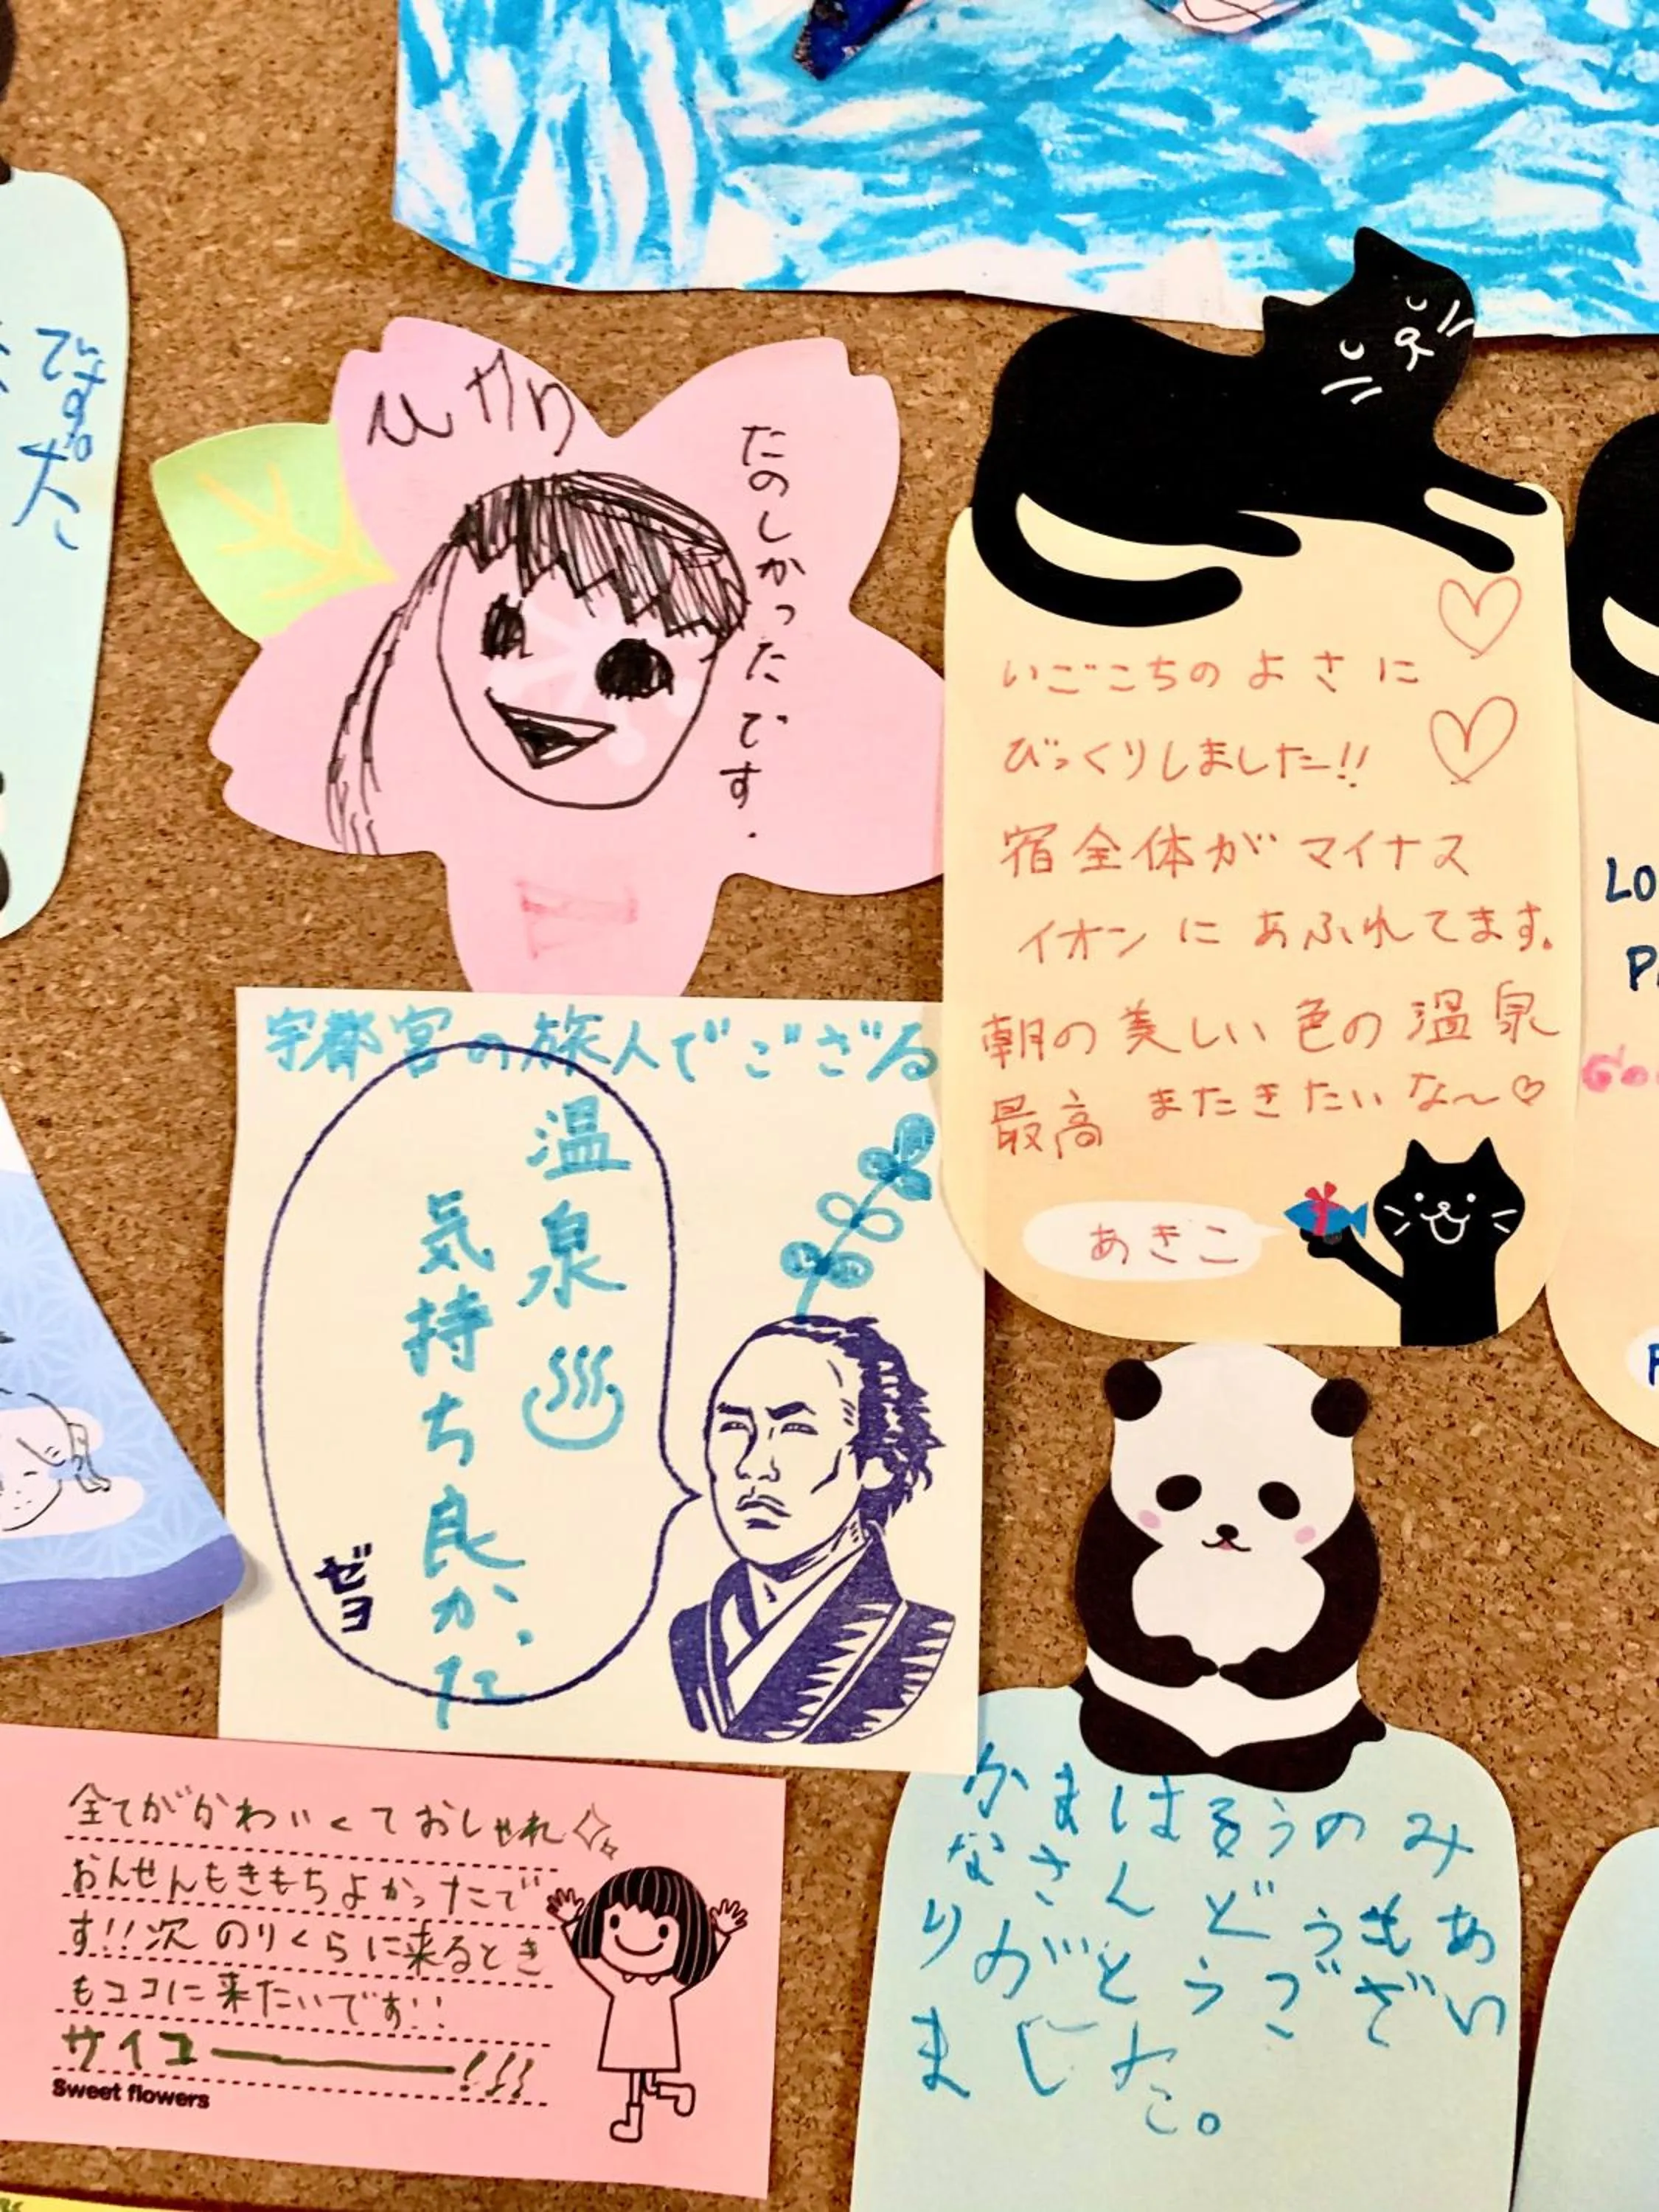 です。
ひかり
たのしかったです.
いごこちのよさに
びっくりしました!!
宿全体がマイナス
イオンにあふれてます。
朝の美しい色の温泉
最高 またきたいな〜♡
あきこ
宇都宮の旅人でござる
温泉♨
気持ち良かった
ゼヨ
全てがかわいくておしゃれ
おんせんもきもちよかったで
す!!次のりくらに来るとき
もココに来たいです!!
サイコー!!!
Sweet flowers
かまはるうのみ
なさんどうもあ
りがとうござい
ました。
LO